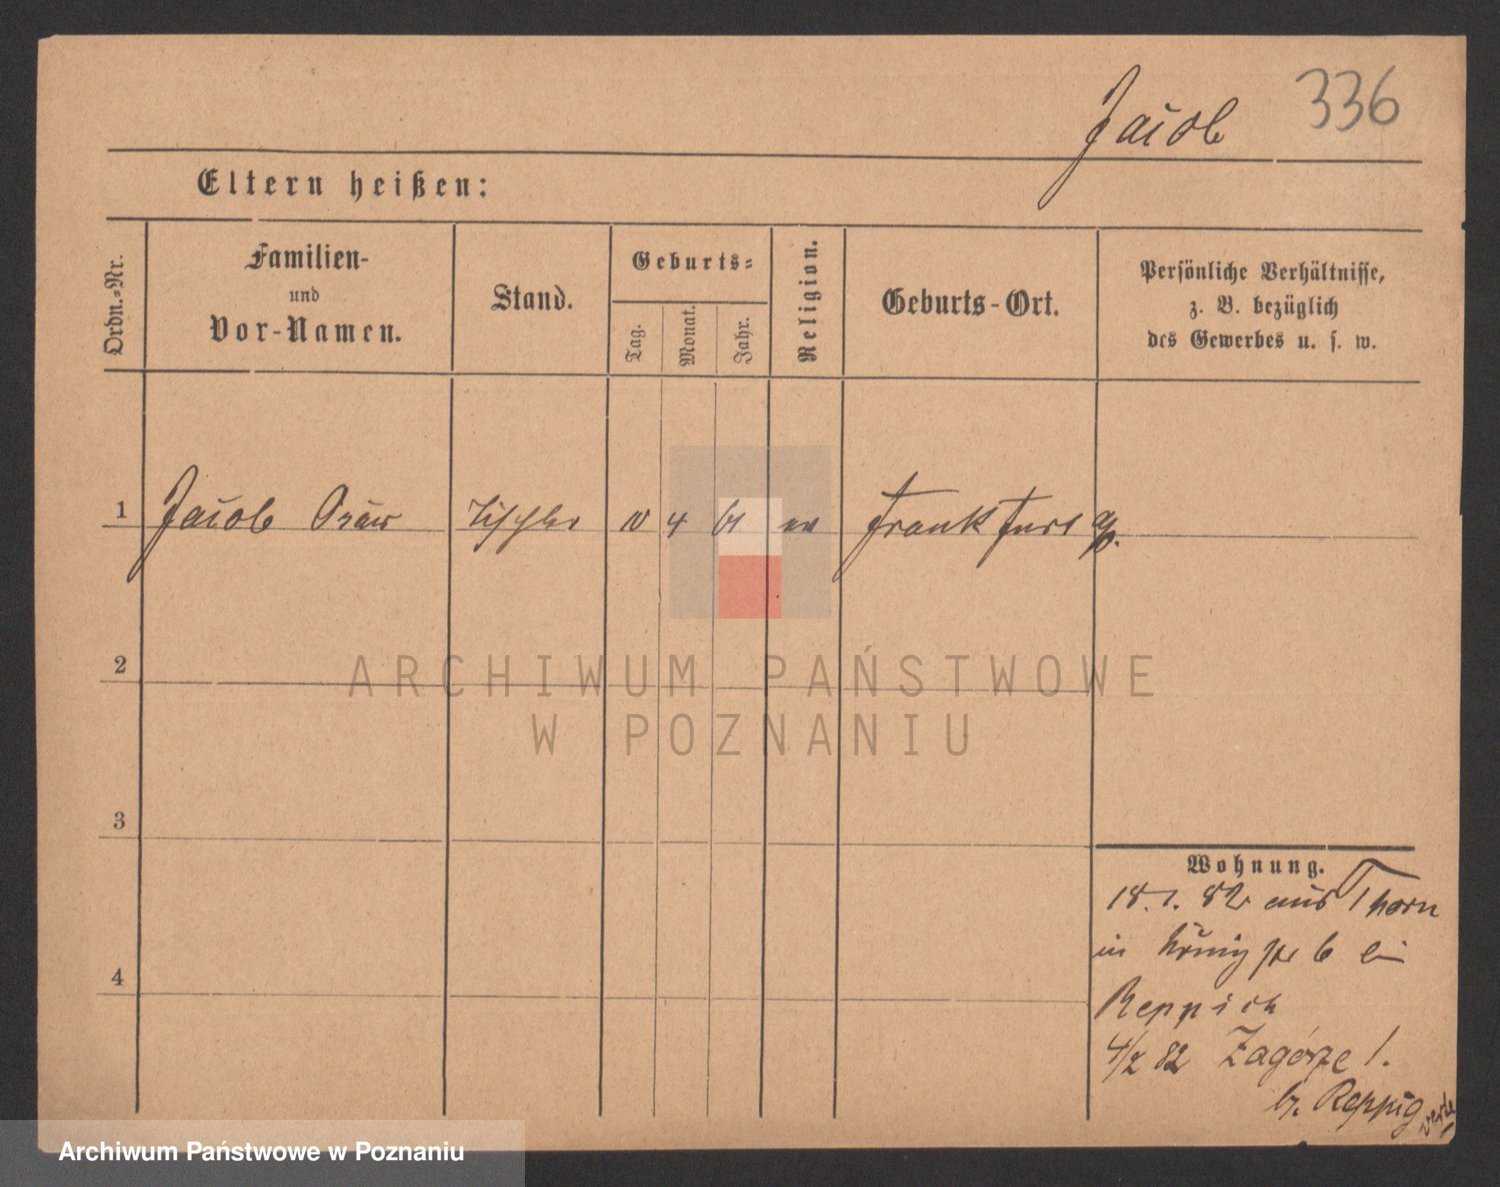 Jacob 336
Eltern heißen:
Ordn.-Nr.
Familien-
und
Vor-Namen.
Stand.
Geburts-
Tag.
Monat.
Jahr.
Religion.
Geburts-Ort.
Persönliche Verhältnisse,
z. B. bezüglich
des Gewerbes u. s. w.
1 Jacob Tischler 10 4 61 Frankfurt a/O.
2
ARCHIWUM PAŃSTWOWE
W POZNANIU
3
Wohnung.
18. 1. 82 aus Thorn
in Königstr 6 bei
Reppich
4
4/2 82 Zagórze 1.
b. Reppig
Archiwum Państwowe w Poznaniu